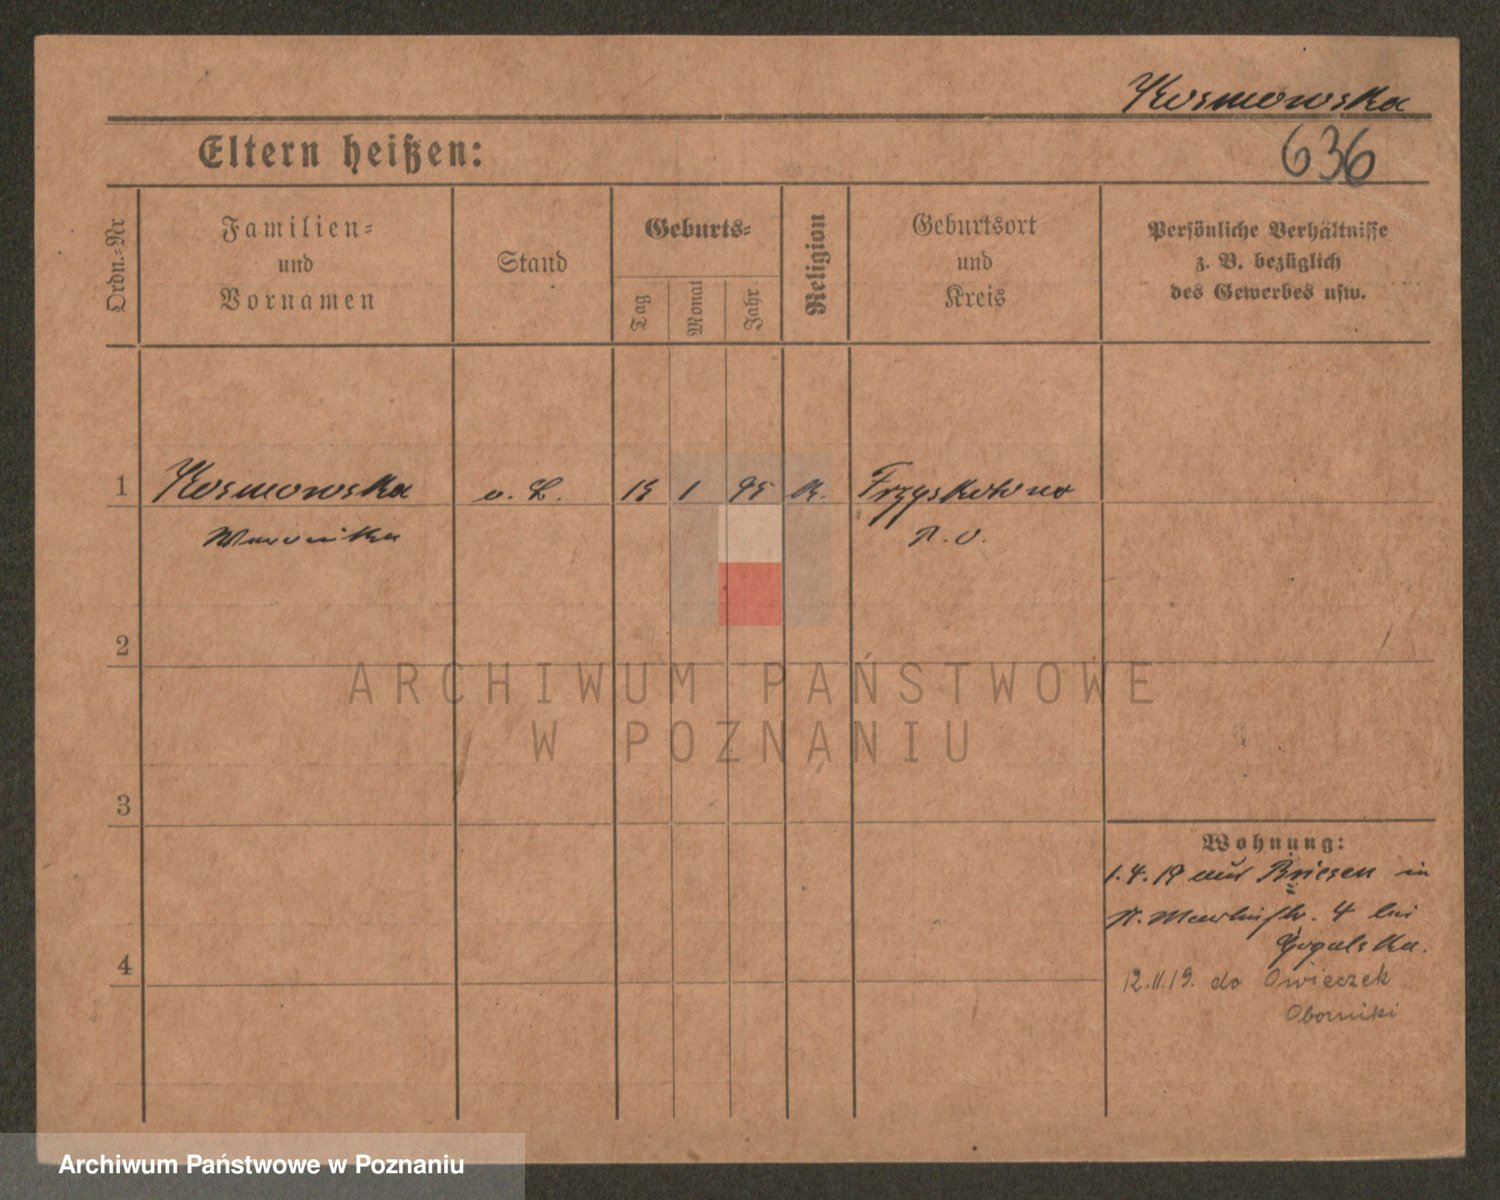 Kosmowska
636
Eltern heißen:
Ordn.-Nr
Familien-
und
Vornamen
Stand
Geburts-
Tag
Monat
Jahr
Religion
Geburtsort
und
Kreis
Persönliche Verhältnisse
z. B. bezüglich
des Gewerbes usw.
1
Kosmowska
15 1 95 K.
Weronika
2
3
4
Wohnung:
1.4.19 aus Briesen in
St. Martinstr. 4 bei
Gogulska.
12.11.19. do Owieczek
Oborniki
ARCHIWUM PAŃSTWOWE
W POZNANIU
Archiwum Państwowe w Poznaniu